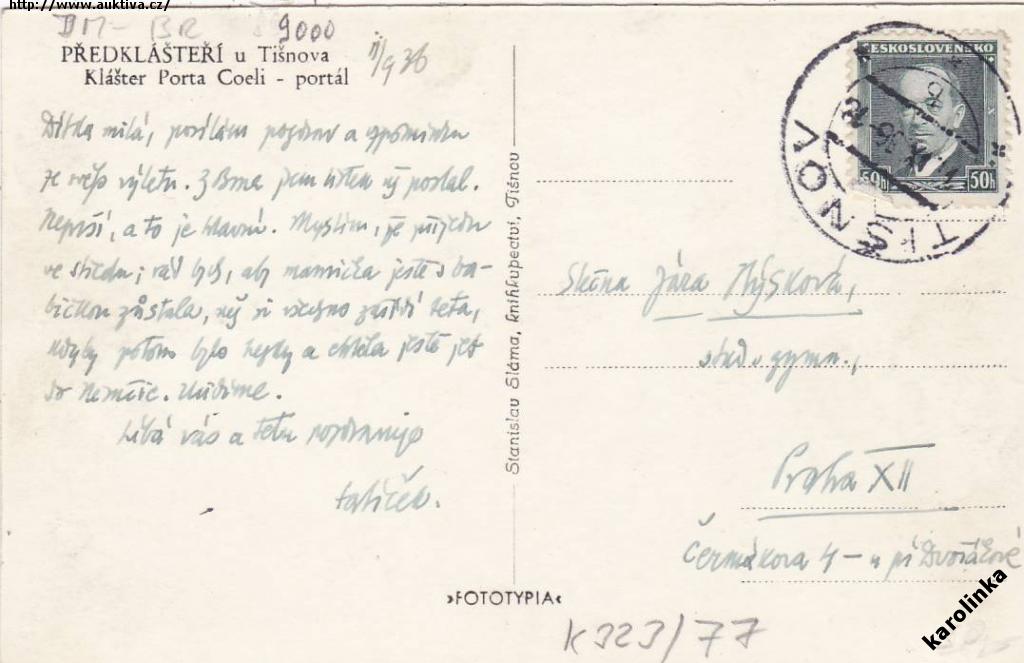 http://www.auktiva.cz/
DM- BR 9000
PŘEDKLÁŠTEŘÍ u Tišnova
Klášter Porta Coeli - portál
11/9 36
milá, posílám pozdrav a vzpomínku
ze svého výletu. Z Brna jsem lístek už poslal.
Neprší, a to je hlavní. Myslím, že přijedu
ve středu; rád bych, aby mamička ještě s ba-
bičkou zůstala, než si všechno zařídí teta,
kdyby potom bylo hezky a chtěla ještě jet
do Uvidíme.
Líbá vás a tetu pozdravuje
tatíček.
Stanislav Sláma, knihkupectví, Tišnov
»FOTOTYPIA«
ČESKOSLOVENSKO
50h 50h
TIŠNOV
Slečna Jára Mýsková,
stud. gymn.,
Praha XII
Čermákova 4 - u pí Dvořákové
K323/77
karolinka